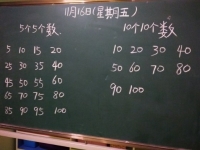 11月16日(星期五)
5个5个数
5 10 15 20
25 30 35 40
45 50 55 60
65 70 75 80
85 90 95 100
10个10个数
10 20 30 40
50 60 70 80
90 100